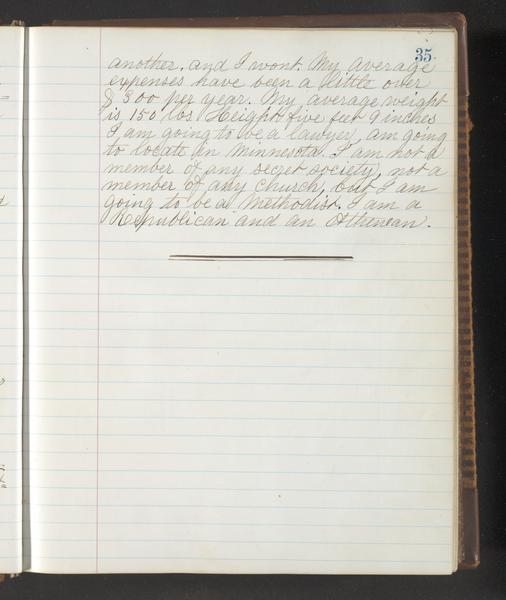 35
another, and I wont. My average
expenses have been a little over
$300 per year. My average weight
is 150 lbs Height five feet 9 inches
I am going to be a lawyer, am going
to locate in Minnesota. I am not a
member of any secret society, not a
member of any church, but I am
going to be a Methodist. I am a
Republican and an Athenean.